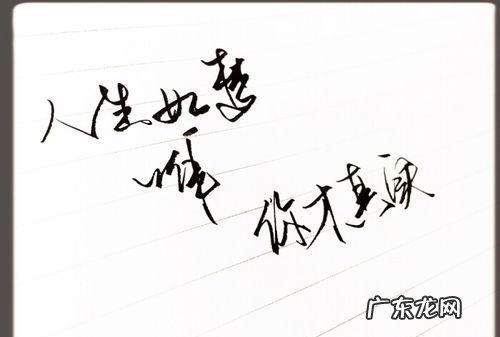 人生如梦
你才真
广东龙网